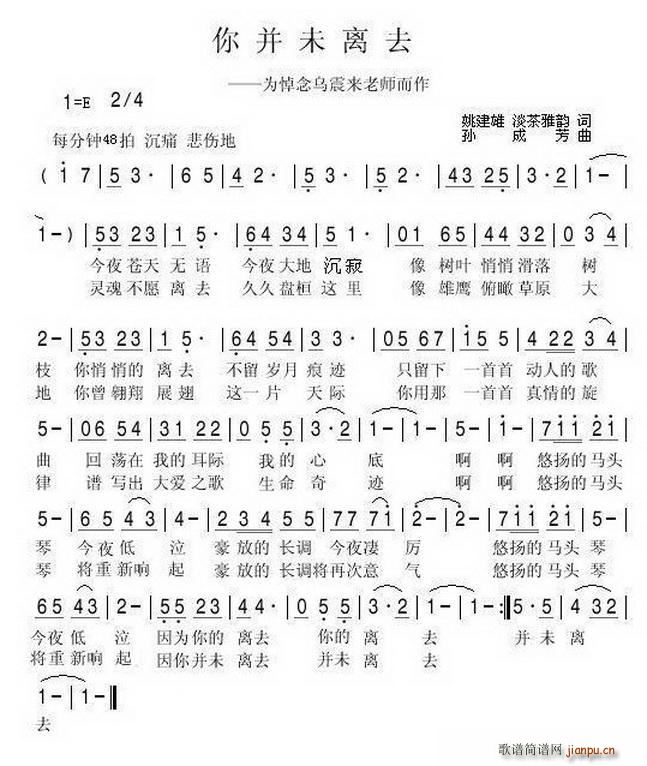 你并未离去
——为悼念乌震来老师而作
1=E 2/4
姚建雄 淡茶雅韵 词
每分钟48拍 沉痛 悲伤地
孙成芳 曲
( i 7 | 5 3· | 6 5 | 4 2· | 5 5· | 2· | 43 25 | 3· | 1- |
1- ) | 53 23 | 1 5· | 64 34 | 5 1· | 01 65 | 44 32 | 0 3 4 |
今夜苍天 无语 今夜大地 沉寂 像 树叶 悄悄 滑落 树
灵魂不愿 离去 久久盘桓 这里 像 雄鹰 俯瞰 草原 大
2- | 53 23 | 1 5· | 64 54 | 3· | 05 67 | 1 55 | 4 22 | 3 4 |
枝 你悄悄的 离去 不留岁月 痕迹 只留下 一首首 动人的 歌
地 你曾翱翔 展翅 这一片 天际 你用那 一首首 真情的 旋
5- | 06 54 | 31 22 | 0 5 5 | 3·2 | 1- | 1- | 5· | 5· | 7ii | 2i |
曲 回荡在 我的耳际 我的 心 底 啊 啊 悠扬的 马头
律 谱写出 大爱之歌 生命 奇 迹 啊 啊 悠扬的 马头
5- | 6 5 4 3 | 4- | 2 3 4 5 5 | 77 7i | 2- | 2- | 7ii 2i | 5- |
琴 今夜低 泣 豪放的 长调 今夜凄 厉 悠扬的 马头 琴
琴 将重新响 起 豪放的 长调将再次意 气 悠扬的 马头 琴
65 43 | 2- | 55 22 | 44· | 0 5 5 | 3·2 | 1- | 1- :‖ 5·5 | 4 32 |
今夜低 泣 因为你的 离去 你的 离 去 并未 离
将重新响 起 因你并未 离去 并未 离 去
1- | 1- ‖
去
歌谱简谱网
jianpu.cn